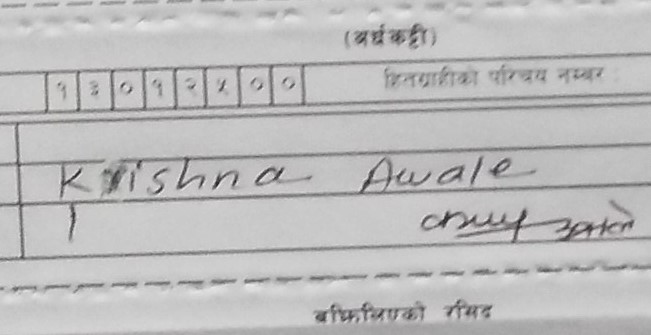 (अर्धकट्टी)
१३०१२५०० हितग्राहीको परिचय नम्बर :
Krishna Awale
१
रसिद